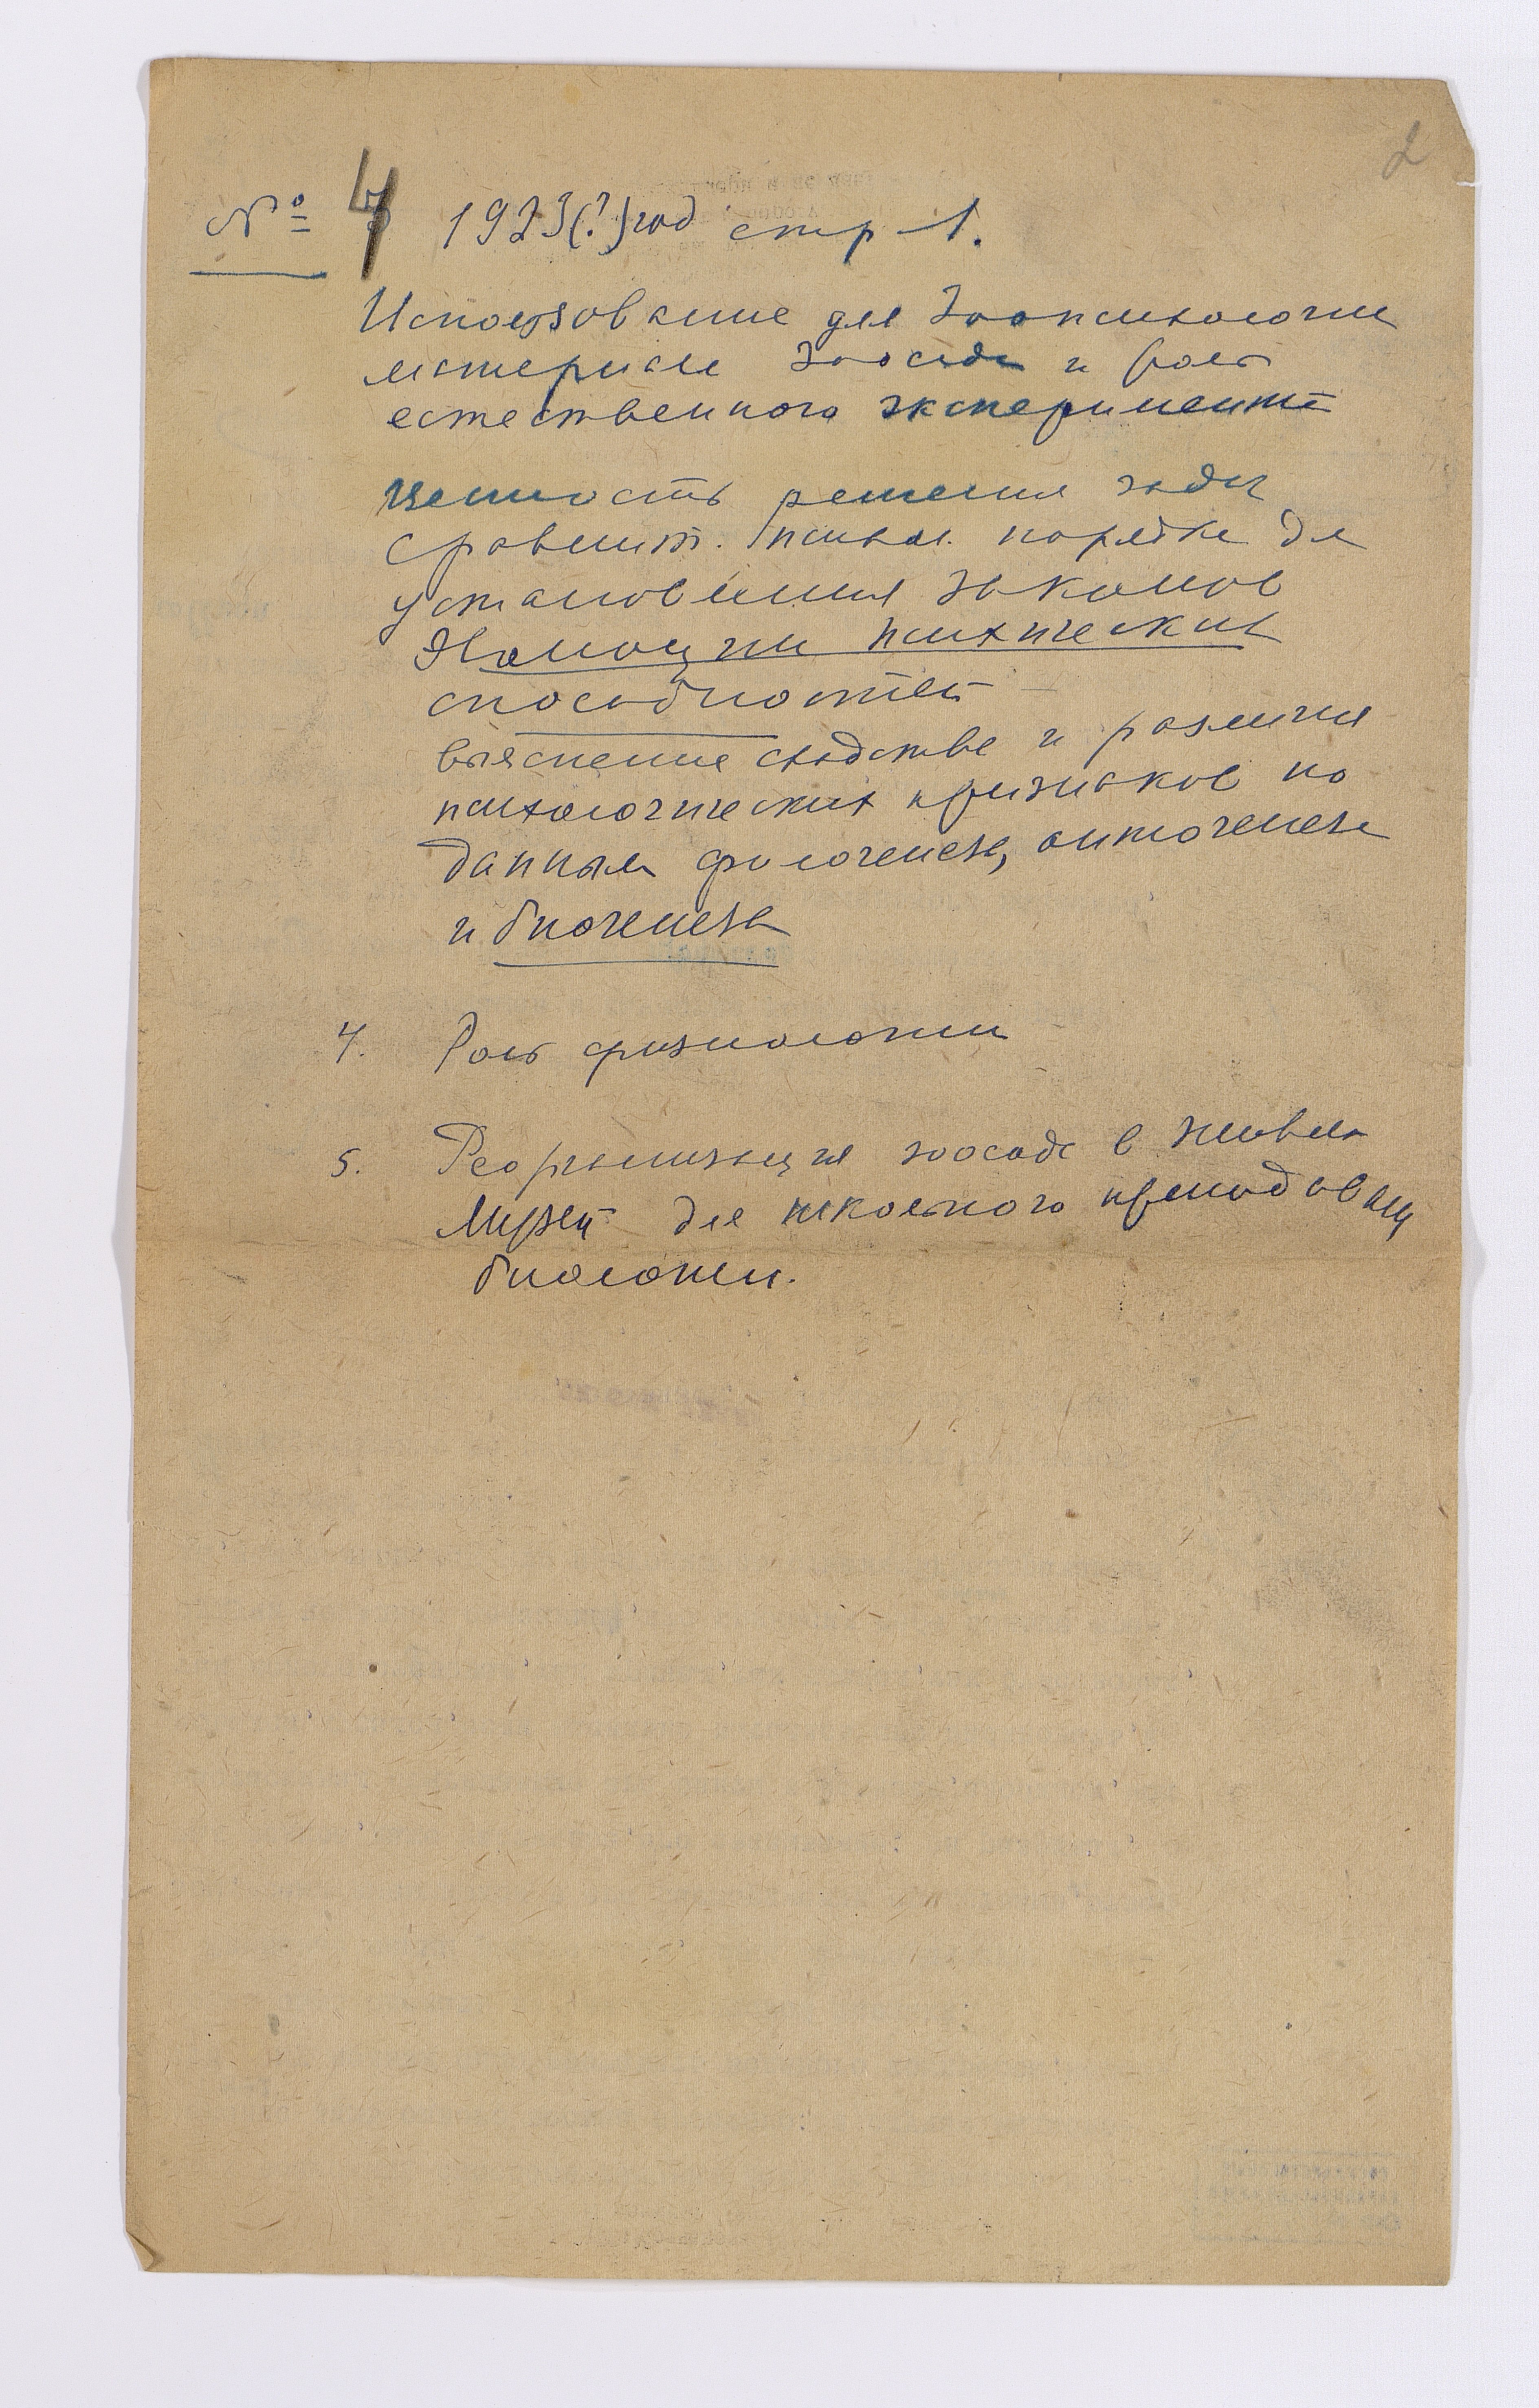 2
№ 4 1923(?) год стр 1.
Использование для Зоопсихологии
материала Зоосада и роль
естественного эксперимента
Ценность решения задач
сравнит. психол. порядка для
установления законов
Эволюции психических
способностей
выяснение сходства и различия
психологических признаков по
данным филогенеза, онтогенеза
и биогенеза
4. Роль физиологии
5. Реорганизация зоосада в живой
Музей для школьного преподаван
биологии.